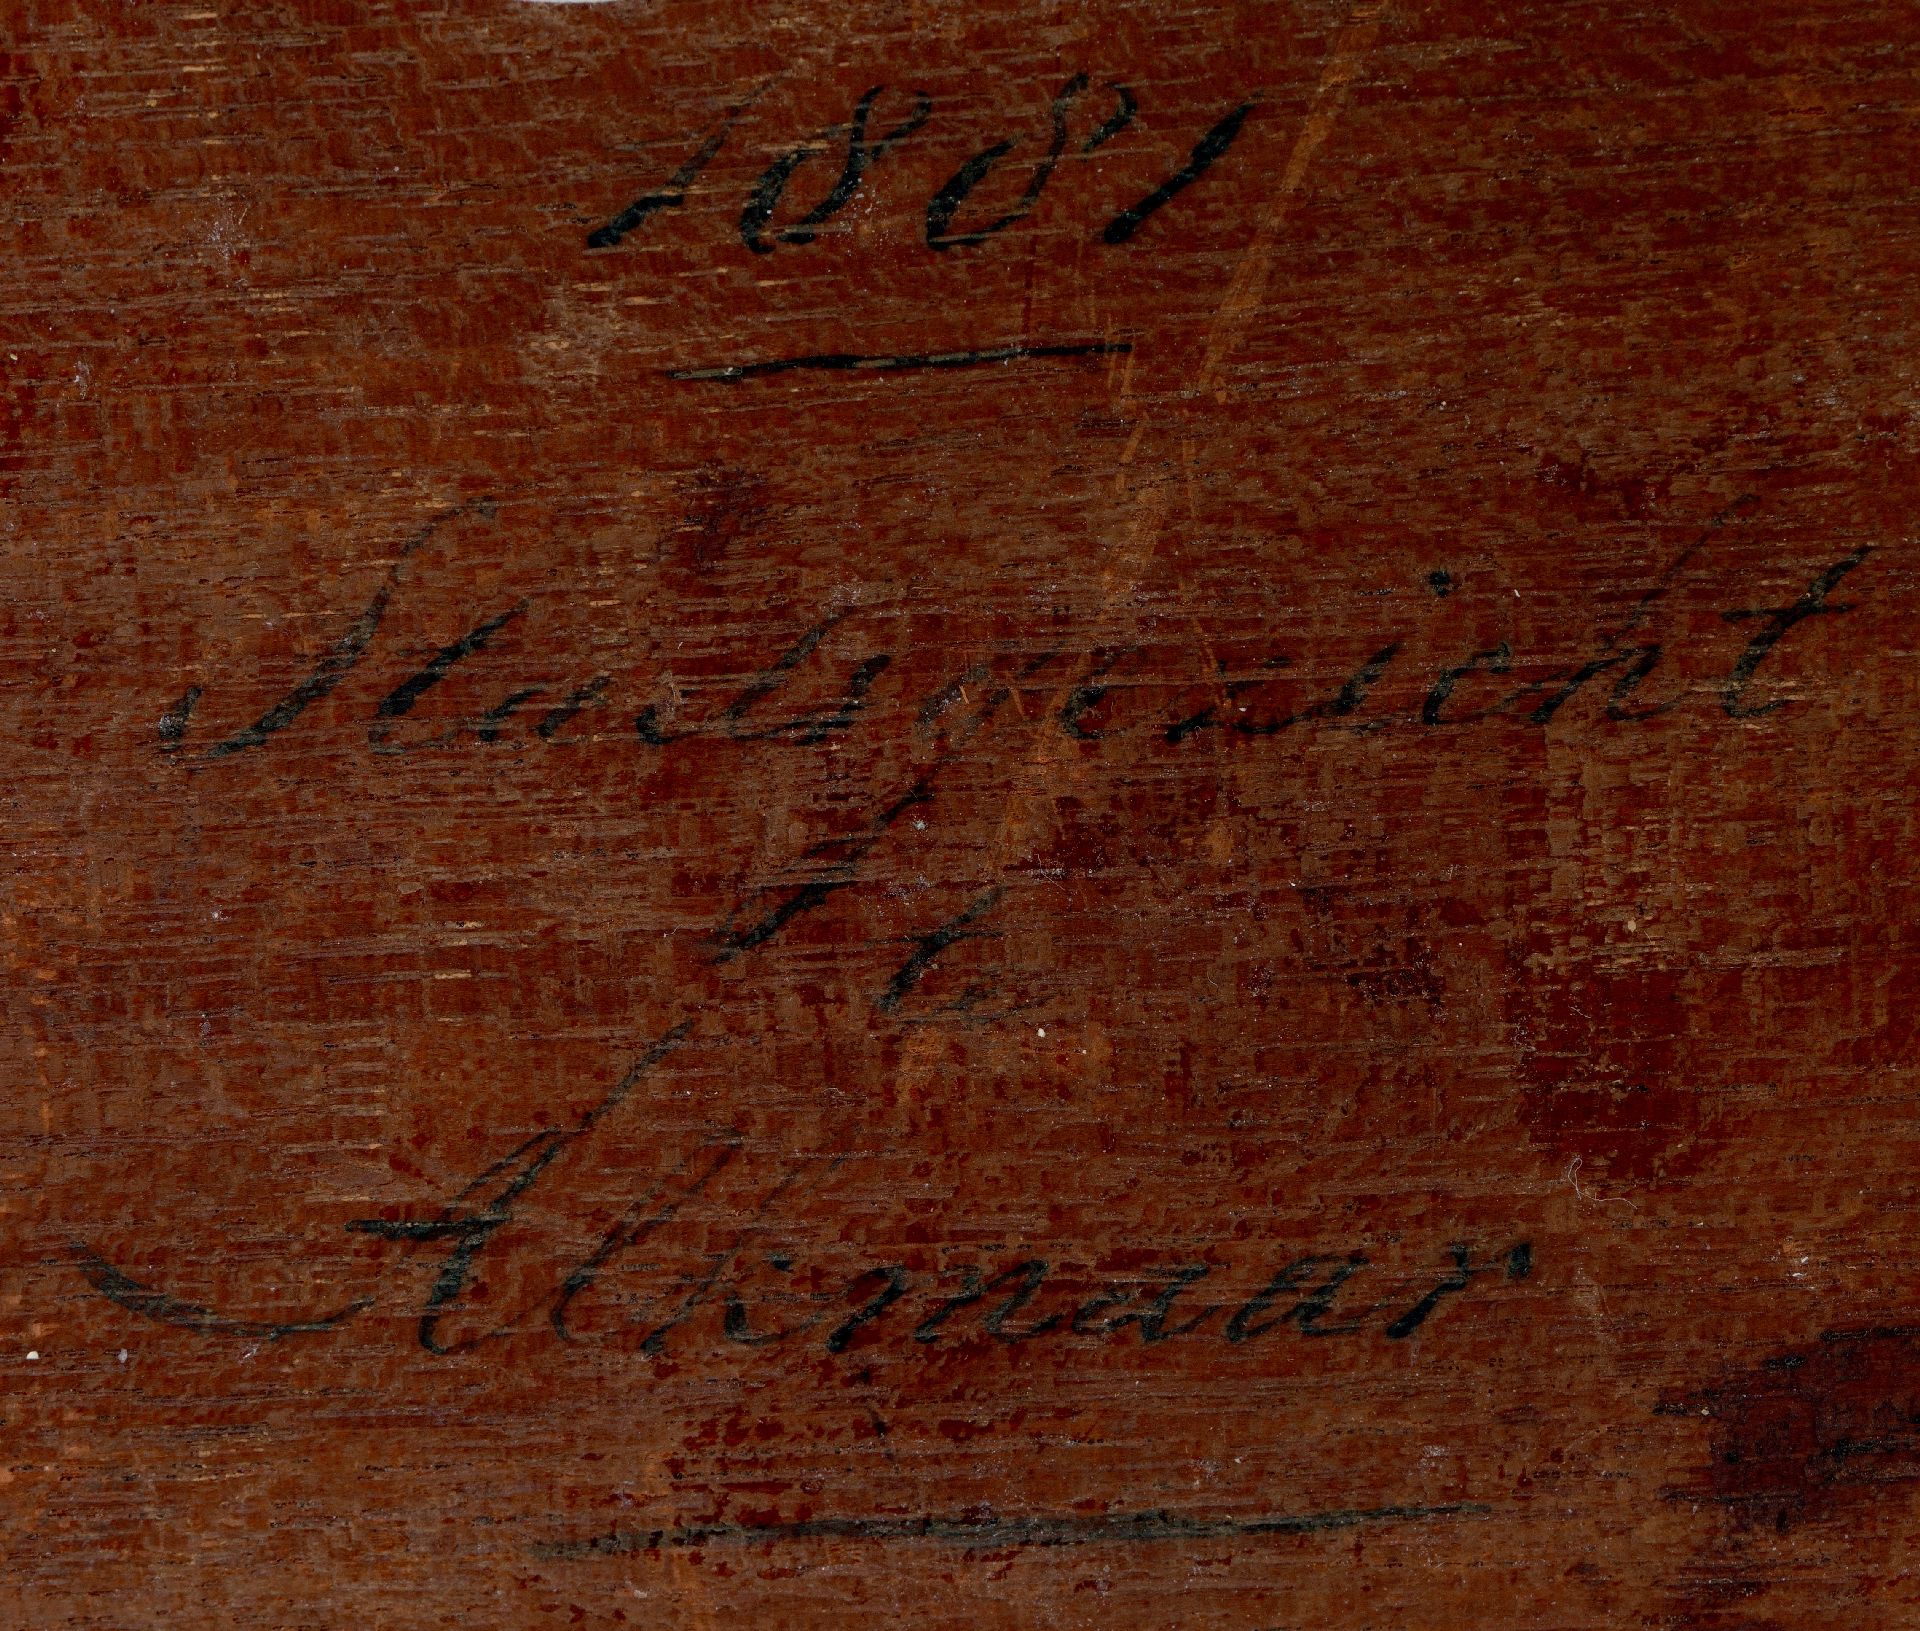 1881
Stadsgezicht
te
Alkmaar